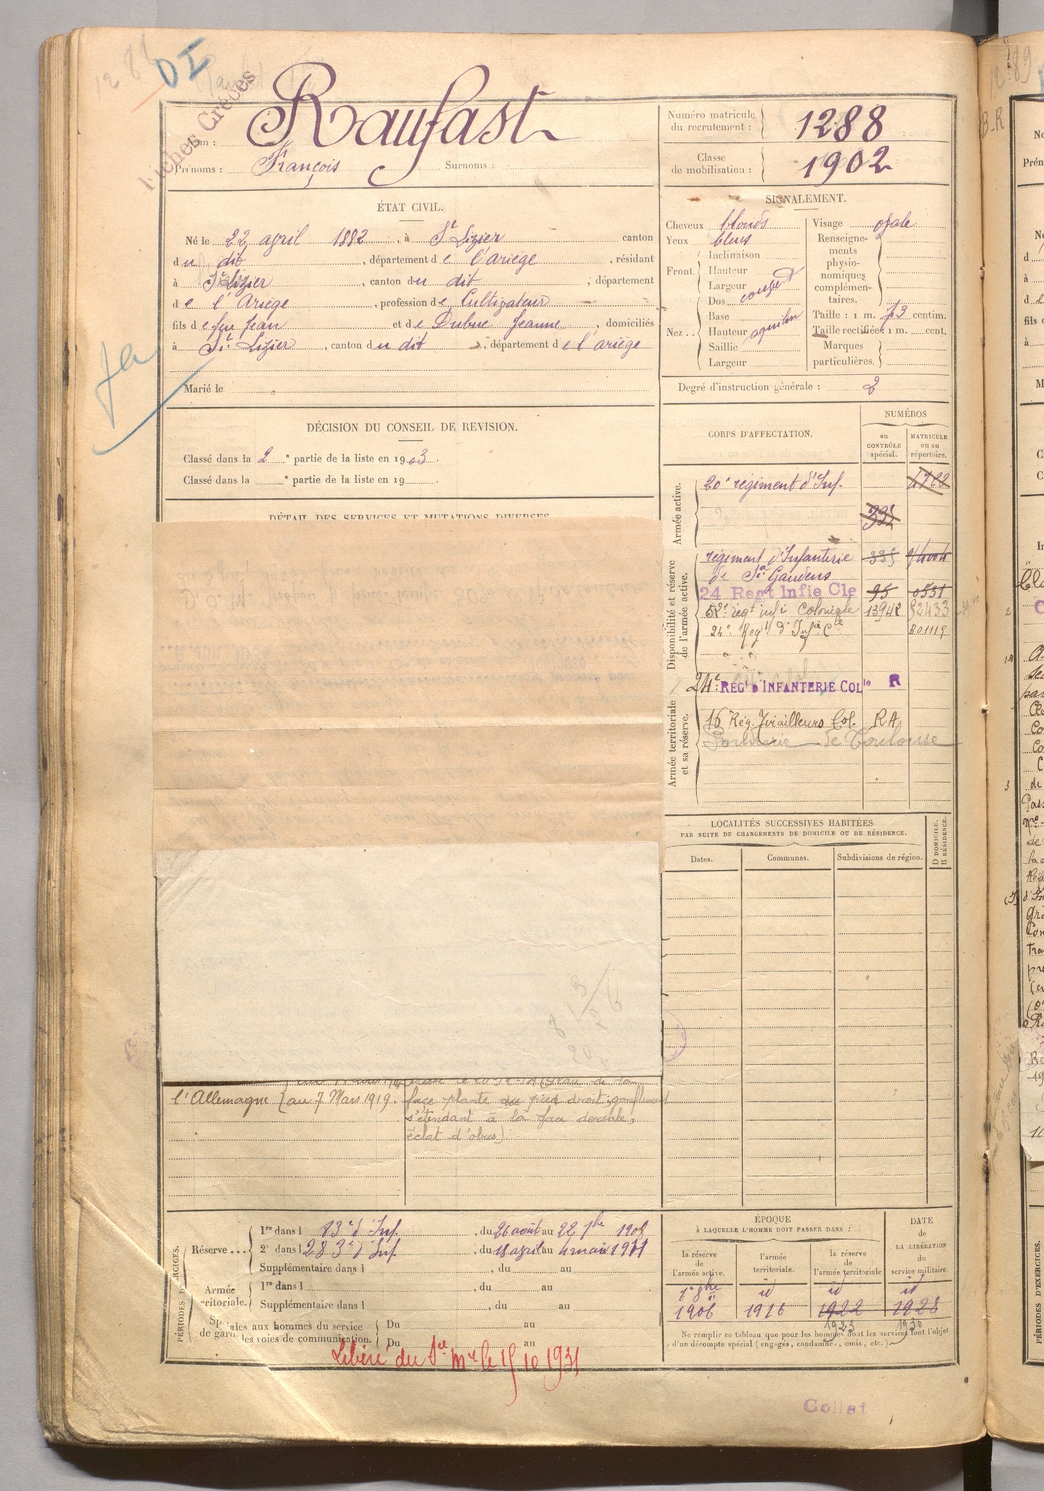 DI
Fiches Grèves
Nom : Raufast
Prénoms : François Surnoms :
Numéro matricule du recrutement : 1288
Classe de mobilisation : 1902
ÉTAT CIVIL.
Né le 22 avril 1882, à St Lizier canton
du dit, département de l'ariège, résidant
à St Lizier, canton du dit, département
de l'Ariège, profession de Cultivateur
fils de feu Jean et de Jeanne, domiciliés
à St Lizier, canton du dit, département de l'ariège
Marié le
SIGNALEMENT.
Cheveux blonds
Yeux bleus
Front Inclinaison
Hauteur
Largeur
Nez Dos
Base
Hauteur
Saillie
Largeur
Visage ovale
Renseignements physionomiques complémentaires.
Taille : 1 m. 73 centim.
Taille rectifiée : 1 m. cent.
Marques particulières.
Degré d'instruction générale : 2
DÉCISION DU CONSEIL DE REVISION.
Classé dans la 2e partie de la liste en 1903.
Classé dans la e partie de la liste en 19 .
DÉTAIL DES SERVICES ET MUTATIONS DIVERSES
CORPS D'AFFECTATION.
NUMÉROS
au CONTRÔLE spécial.
MATRICULE ou au répertoire.
Armée active.
20e régiment d'Inf.
Disponibilité et réserve de l'armée active.
régiment d'Infanterie
de St Gaudens
24 Regt Infie Cle 95 0551
52e régt infie Coloniale 13942 52433
24e Regt d'Infie Cle B01119
Armée territoriale et sa réserve.
24e RÉGt D'INFANTERIE COLle R
16 Rég. Tirailleurs Col. RA
Poudrerie de Toulouse
LOCALITÉS SUCCESSIVES HABITÉES
PAR SUITE DE CHANGEMENTS DE DOMICILE OU DE RÉSIDENCE.
Dates. Communes. Subdivisions de région. D DOMICILE. R RÉSIDENCE.
l'Allemagne au 7 Mars 1919. face plante du pied droit, gonflement
s'étendant à la face dorsale,
éclat d'obus)
PÉRIODES D'EXERCICES.
Réserve
1re dans l 83e d'Inf. , du 26 août au 22 7bre 1908
2e dans l 283e d'Inf , du 18 avril au 4 mai 1911
Supplémentaire dans l , du au
Armée territoriale.
1re dans l , du au
Supplémentaire dans l , du au
Spéciales aux hommes du service de garde des voies de communication.
Du au
Du au
Libéré du Sce Mre le 15 10 1931
ÉPOQUE
À LAQUELLE L'HOMME DOIT PASSER DANS :
la réserve de l'armée active.
l'armée territoriale.
la réserve de l'armée territoriale
DATE DE LA LIBÉRATION du service militaire.
1906 1916 1922 1928
Ne remplir ce tableau que pour les hommes dont les services font l'objet
d'un décompte spécial (engagés, condamnés, omis, etc.)
Collat